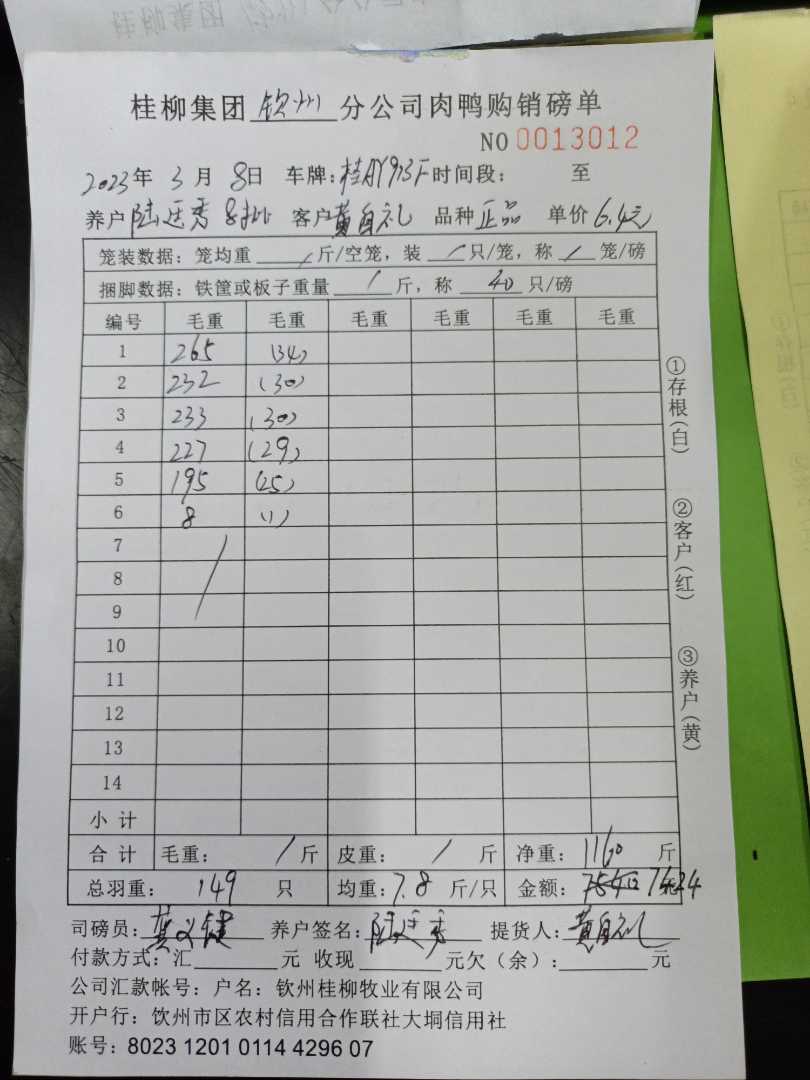 桂柳集团钦州分公司肉鸭购销磅单
NO 0013012
2023年 3月 8日 车牌:桂AY913F 时间段: 至
养户 陆廷秀 8批 客户 黄自礼 品种 正品 单价 6.4元
笼装数据: 笼均重 / 斤/空笼, 装 / 只/笼, 称 / 笼/磅
捆脚数据: 铁筐或板子重量 / 斤, 称 40 只/磅
编号 毛重 毛重 毛重 毛重 毛重 毛重
1 265 (34)
2 232 (30)
3 233 (30)
4 227 (29)
5 195 (25)
6 8 (1)
7
8
9
10
11
12
13
14
小 计
合 计 毛重: / 斤 皮重: / 斤 净重: 1160 斤
总羽重: 149 只 均重: 7.8 斤/只 金额: 7424
司磅员: 养户签名: 陆廷秀 提货人: 黄自礼
付款方式: 汇 元 收现 元欠(余): 元
公司汇款帐号: 户名: 钦州桂柳牧业有限公司
开户行: 钦州市区农村信用合作联社大垌信用社
账号: 8023 1201 0114 4296 07
①存根(白)
②客户(红)
③养户(黄)